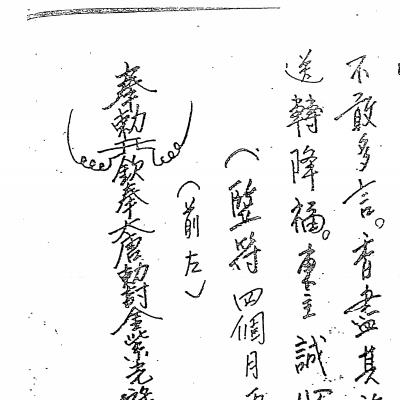 不敢多言。香盡其
送轉降福。事主誠
（竪符四個月
（前左）
奉勅 欽奉大唐勅封金紫光